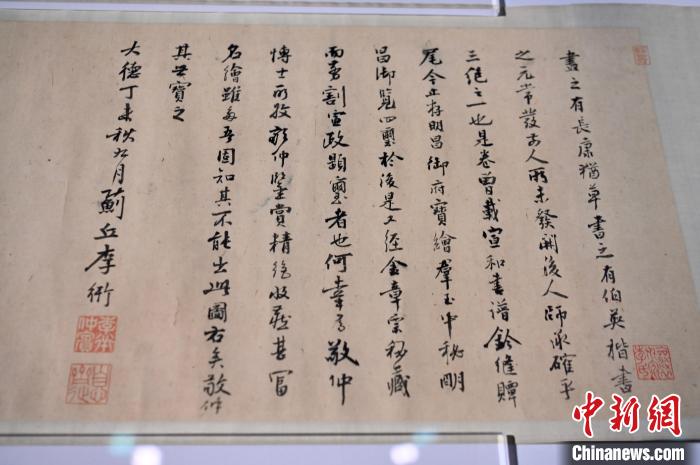 畫之有長康猶草書之有伯英楷書
之元常發前人所未發開後人師承確乎
三絕之一也是卷曾載宣和畫譜鈐縫贉
尾今止存明昌御府寶繪羣玉中秘明
昌御覽四璽於後是又經金章宗秘藏
而剪割宣政題璽者也何幸為敬仲
博士所收敬仲鑒賞精絕收藏甚富
名繪雖多吾固知其不能出此圖右矣敬仲
其世寶之
大德丁未秋九月薊丘李衎
中新网
Chinanews.com